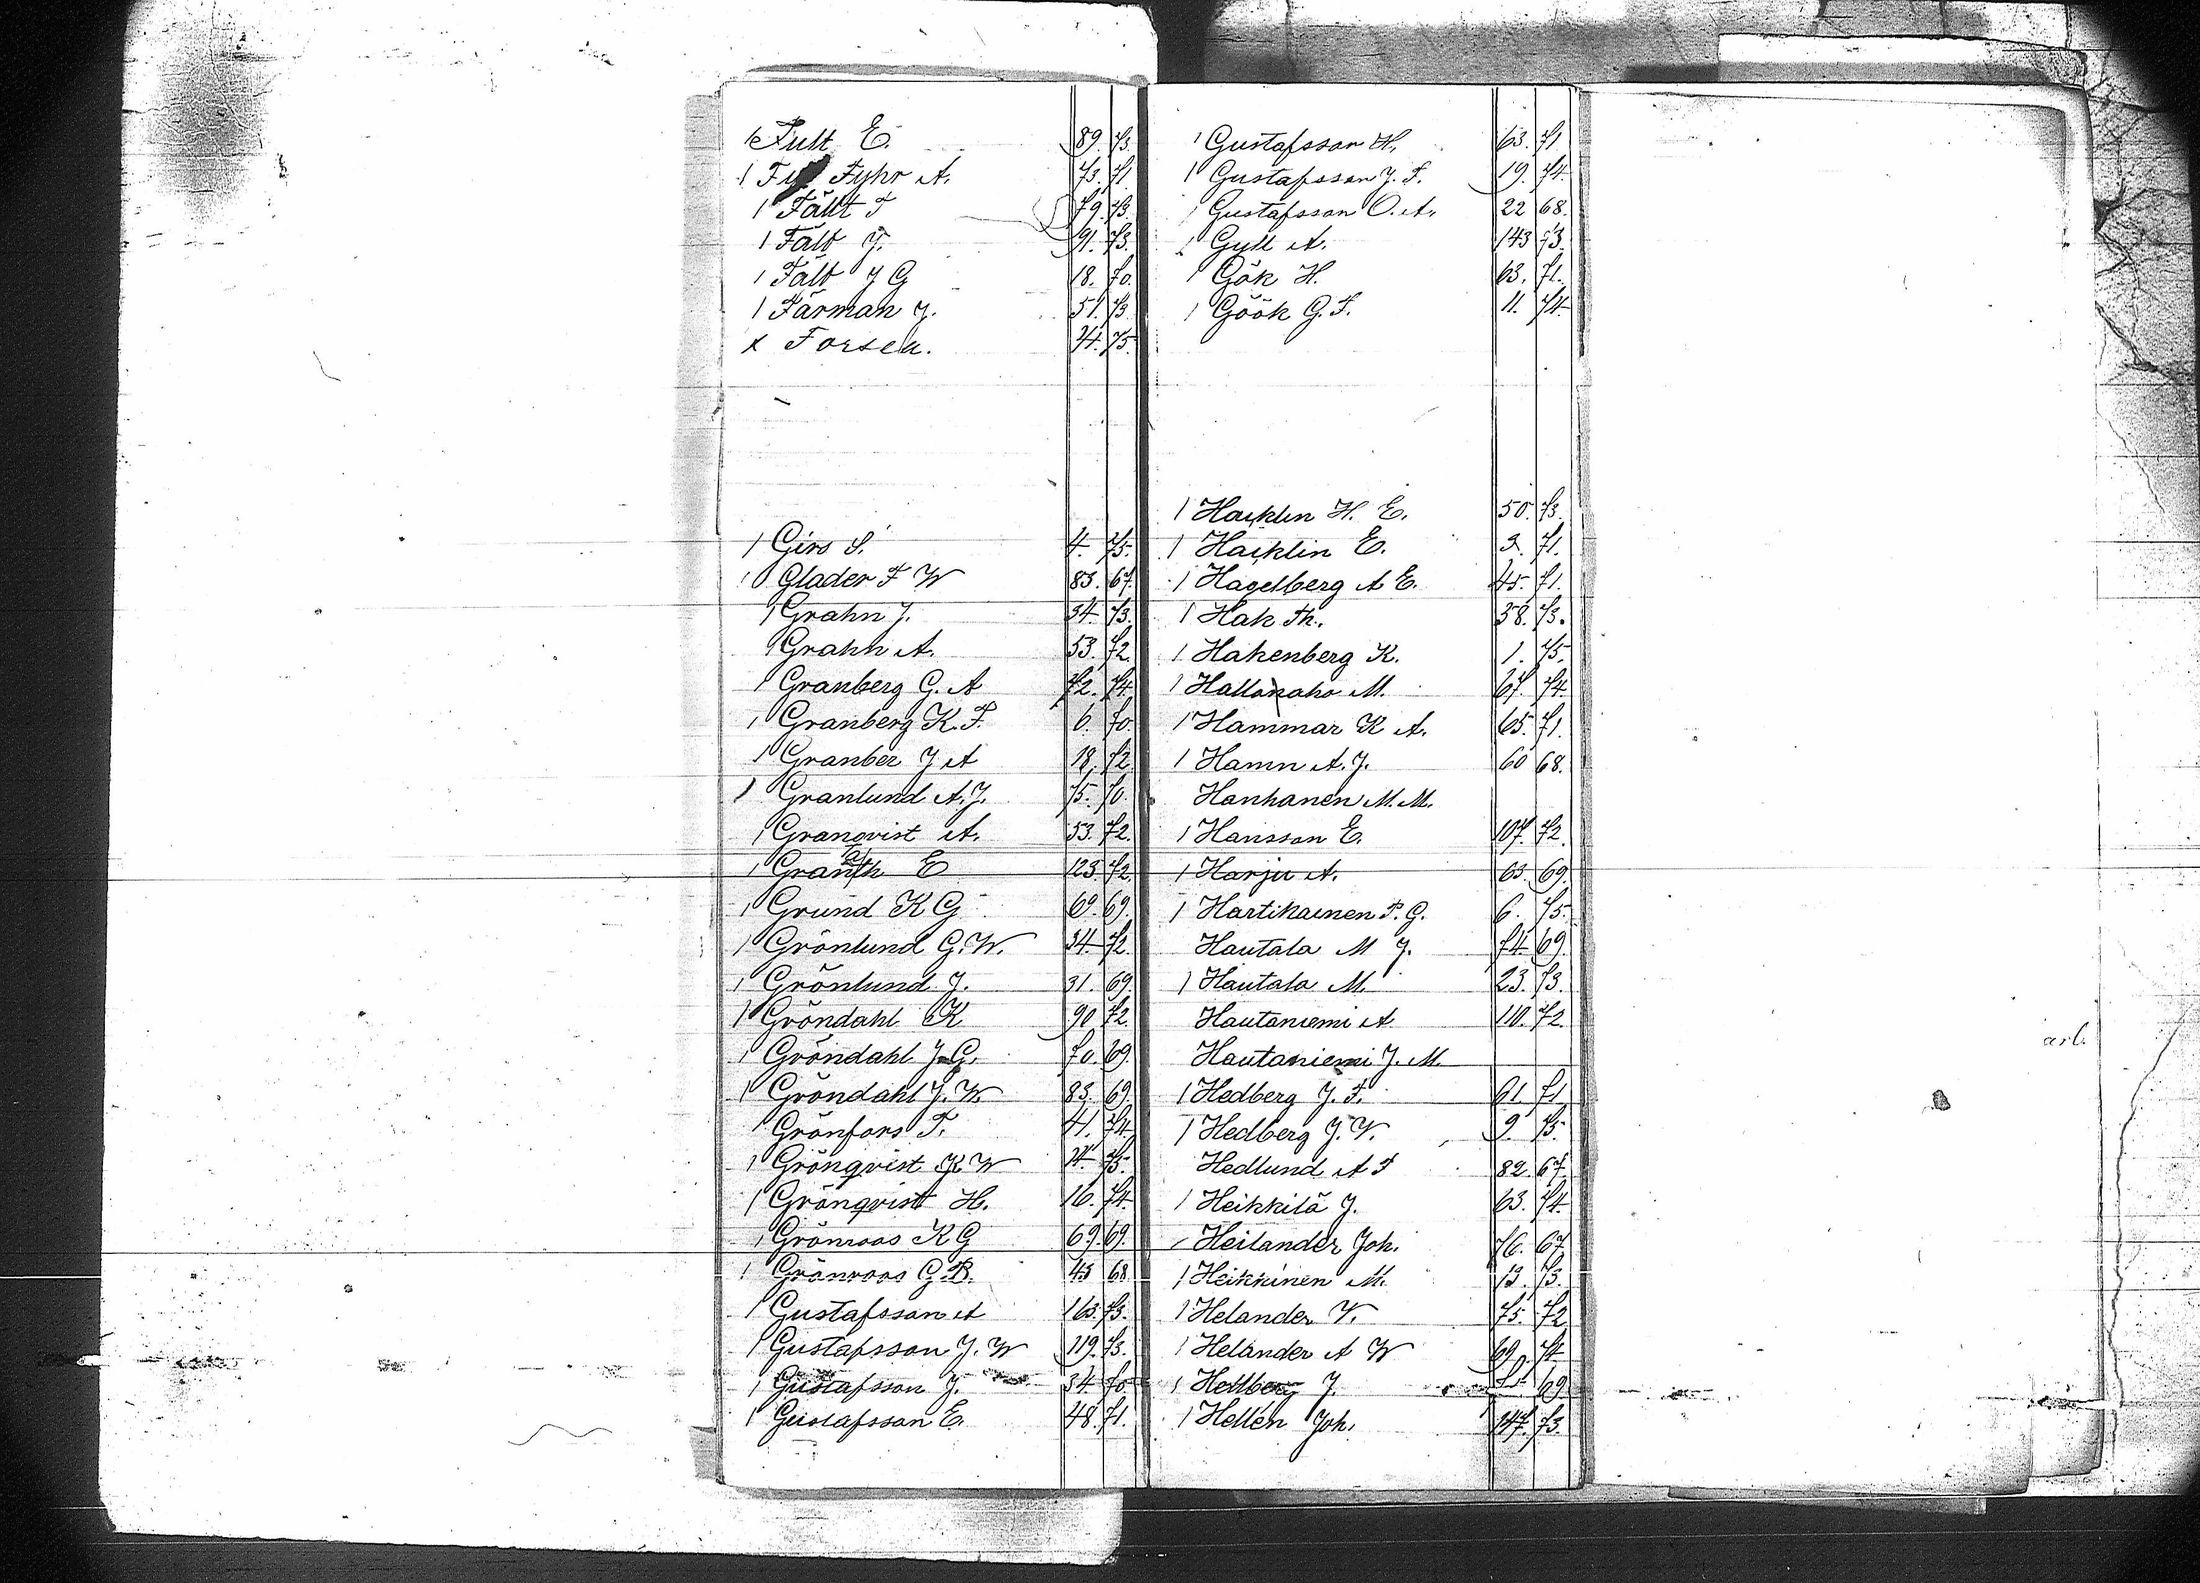 1 Fult E. 89. 73.
1 Fyhr A. 73. 71.
1 Fält F 79. 73.
1 Fält J. 91. 73.
1 Fält J G 18. 70.
1 Färman J. 51. 73
x Forsen. 74. 75.
1 Girs S. 4. 75.
1 Glader F W 83. 67.
1 Grahn J. 34. 73.
1 Grahn A. 53. 72.
1 Granberg G. A 72. 74.
1 Granberg K. F. 6. 70
1 Granber J A 18. 72
1 Granlund A. J. 75. 70.
1 Granqvist A. 53. 72.
1 Granath E 123. 72.
1 Grund K G 69. 69.
1 Grönlund G. W. 34. 72.
1 Grönlund J. 31. 69.
1 Gröndahl K 90 72.
1 Gröndahl J. G. 70. 69.
1 Gröndahl J. W. 83. 69.
1 Grönfors F. 41. 74.
1 Grönqvist K W 74. 75.
1 Grönqvist H. 16. 74.
1 Grönroos K G 69. 69.
1 Grönroos G. B. 43 68
1 Gustafsson A 163. 73.
1 Gustafsson J. W 119. 73.
1 Gustafsson J. 34. 70
1 Gustafsson E. 48. 71.
1 Gustafsson H. 63. 71
1 Gustafsson J. F. 19. 74.
1 Gustafsson O. A. 22 68.
1 Gyll A. 143 73.
1 Gök H. 63. 71.
1 Göök G. F. 11. 74.
1 Hacklin H. E. 50. 73.
1 Hacklin E. 2. 71.
1 Hagelberg A E. 45. 71.
1 Hak Th. 38. 73.
1 Hakenberg K. 1. 75.
1 Hallanaho M. 67. 74.
1 Hammar K A. 65. 71.
1 Hamn A. J. 60 68.
Hanhanen M. M.
1 Hansson E. 107. 72.
1 Harju A. 63. 69.
1 Hartikainen P. G. 6. 75.
Hautala M J. 74. 69.
1 Hautala M. 23. 73.
Hautaniemi A. 110. 72.
Hautaniemi J. M.
1 Hedberg J. F. 61. 71
1 Hedberg J. V. 9. 75.
Hedlund A F 82. 67.
1 Heikkilä J. 63. 74.
1 Heilander Joh. 76. 67.
1 Heikkinen M. 13. 73.
1 Helander V. 75. 72
1 Helander A W 69. 74.
1 Hellberg J. 69
1 Hellén Joh. 147. 73.
arb.